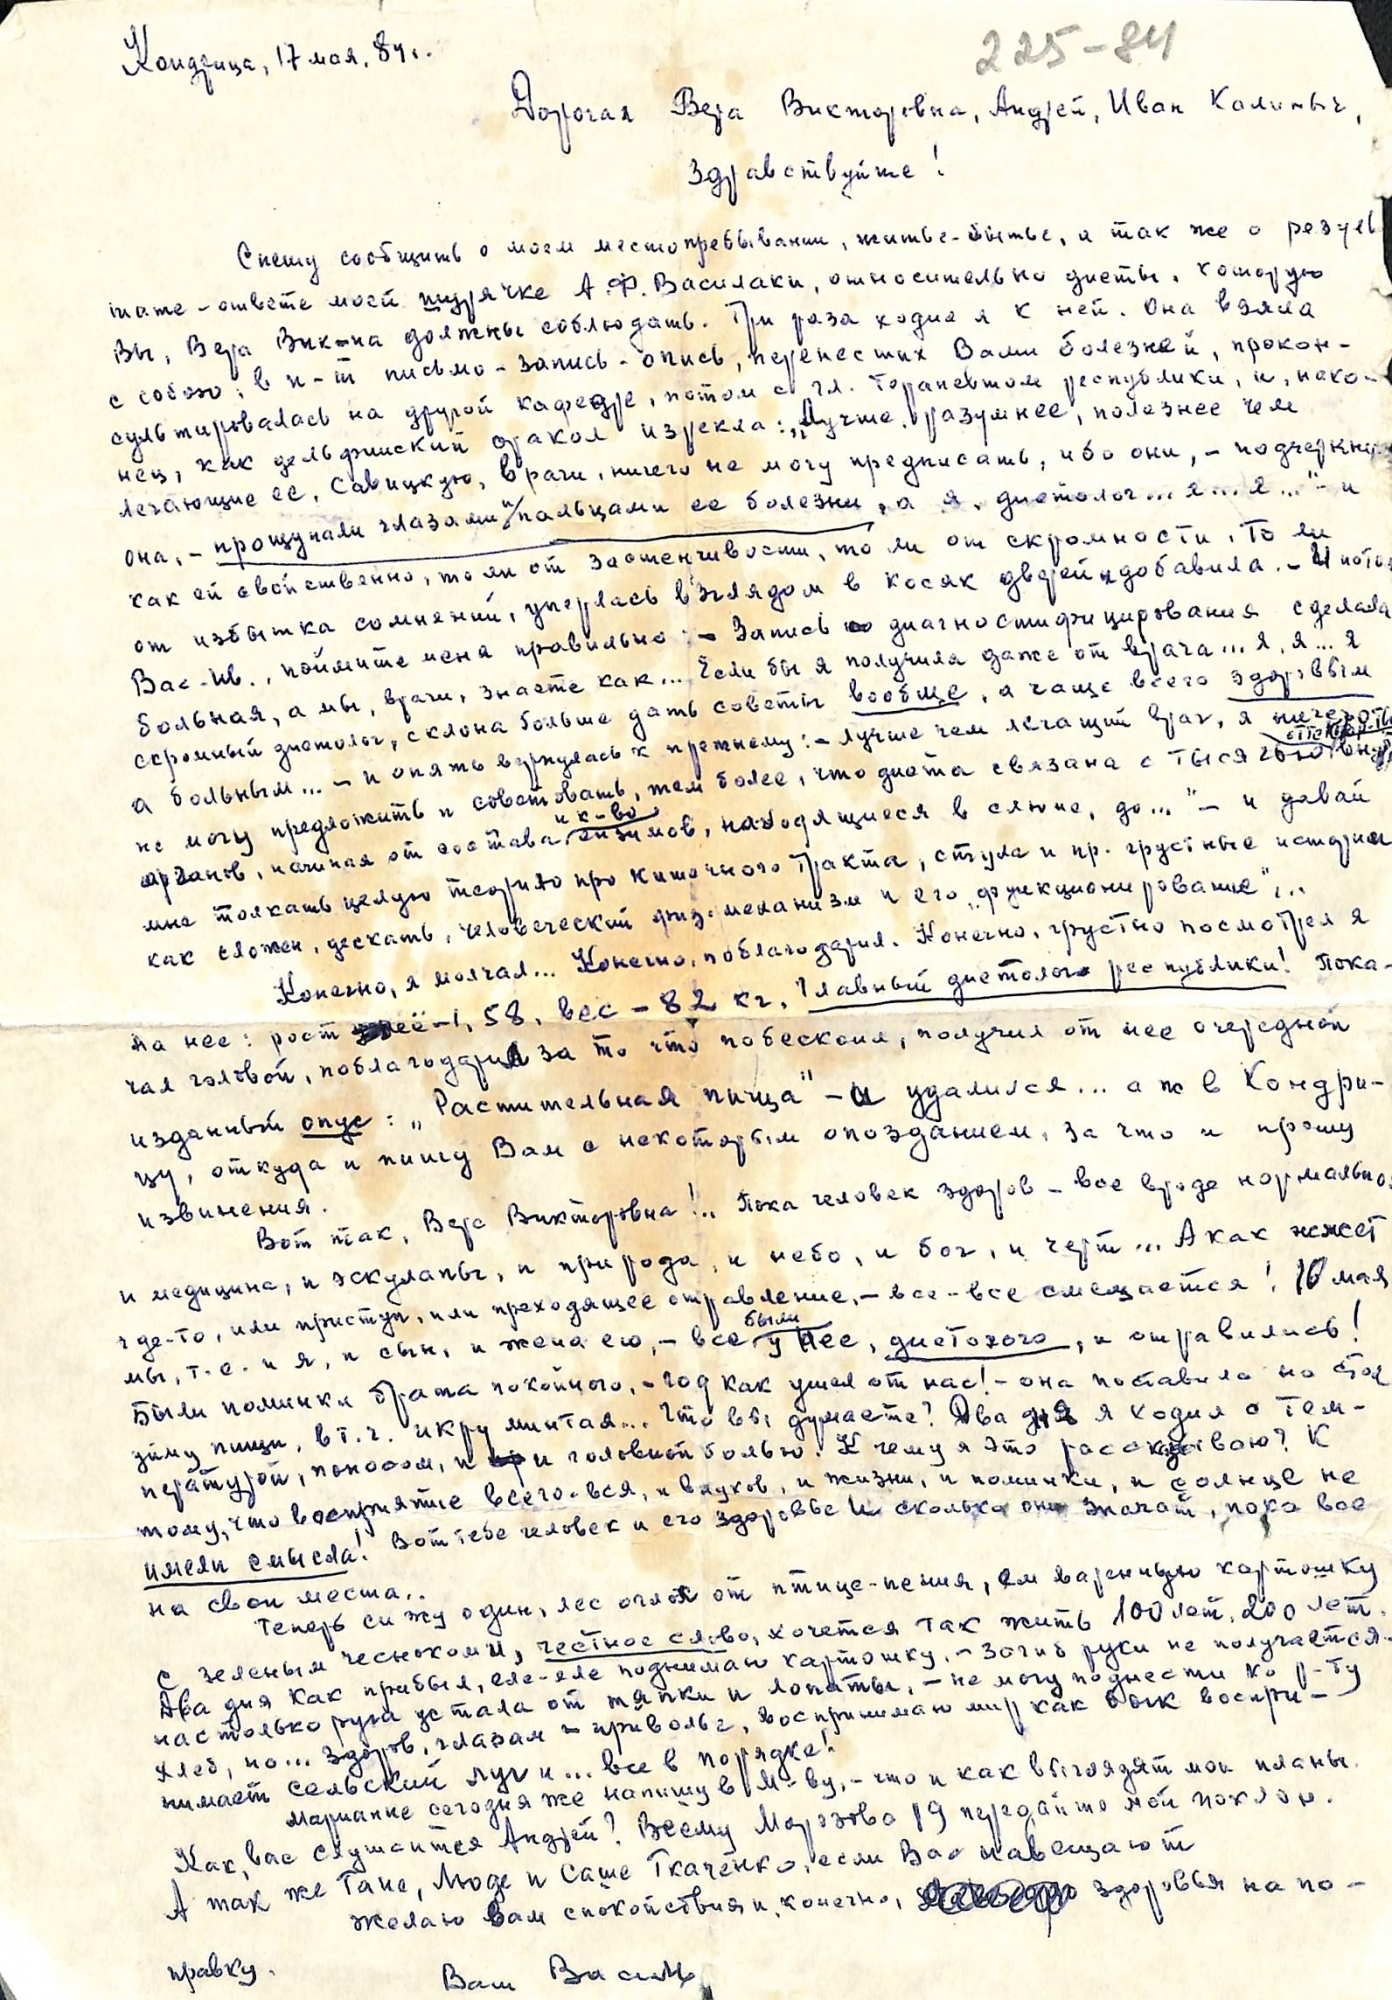 225-84
Кондрица, 17 мая, 84 г.
Дорогая Вера Викторовна, Андрей, Иван Калиныч,
Здравствуйте!
Спешу сообщить о моем местопребывании, житье-бытье, а так же о резуль
тате-ответе моей турячке А.Ф. Василаки, относительно диеты, которую
Вы, Вера Вик-на должны соблюдать. Три раза ходил я к ней. Она взяла
с собою в и-т письмо-запись-опись, перенесших Вами болезней, прокон-
сультировалась на другой кафедре, потом с гл. терапевтом республики, и, нако-
нец, как дельфийский оракол изрекла: „Лучше, разумнее, полезнее чем
лечающие ее, Савицкую, врачи, ничего не могу предписать, ибо они, - подчеркну
она, - прощупали глазами и пальцами ее болезни, а я, диетолог... я... я..." - и
как ей свойственно, то ли от застенчивости, то ли от скромности, то ли
от избытка сомнений, уперлась взглядом в косяк дверей и добавила. - И потом
Вас-Ив., поймите меня правильно: - Запись диагностифицирования сделала
больная, а мы, врачи, знаете как... Если бы я получила даже от врача... я, я... я
скромный диетолог, склона больше дать советы вообще, а чаще всего здоровым
а больным... - и опять вернулась к прежнему: - лучше чем лечащий врач, я ничего
не могу предложить и советовать, тем более, что диета связана с тысячью
органов, начиная от состава и к-во энзимов, находящиеся в слюне, до..." - и давай
мне толкать целую теорию про кишечного тракта, стула и пр. грустные истории
как сложен, дескать, человеческий физ. механизм и его „функционирование"...
Конечно, я молчал... Конечно, поблагодарил. Конечно, грустно посмотрел я
на нее: рост её - 1,58, вес - 82 кг. Главный диетолог республики! Пока-
чал головой, поблагодарил за то что побескоил, получил от нее очередной
изданный опус: „Растительная пища" - и удалился... аж в Кондри-
цу, откуда и пишу Вам с некоторым опозданием, за что и прошу
извинения.
Вот так, Вера Викторовна!.. Пока человек здоров - все вроде нормально,
и медицина, и эскулапы, и природа, и небо, и бог, и черт... А как нажет
где-то, или приступ, или преходящее отравление, - все-все смещается! 10 мая
мы, т.е. и я, и сын, и жена его, - все были у нее, диетолога, и отравились!
Были поминки брата покойного, - год как ушел от нас! - она поставила на стол
уйму пищи, в т.ч. икру минтая... Что вы думаете? Два дня я ходил с тем-
пературой, поносом, и головной болью. К чему я это рассказываю? К
тому, что восприятие всего-вся, и внуков, и жизни, и поминки, и солнце не
имели смысла! Вот тебе человек и его здоровье и сколько они значат, пока все
на свои места..
Теперь сижу один, лес оглох от птице-пения, ем варенную картошку
с зеленым чесноком и, честное слово, хочется так жить 100 лет, 200 лет.
Два дня как прибыл, еле-еле поднимаю картошку, - загиб руки не получается -
настолько рука устала от тяпки и лопаты, - не могу поднести ко р-ту
хлеб, но... здоров, глазам - приволье, воспринимаю мир как бык воспри-
нимает сельский луг и... все в порядке!
Марианне сегодня же напишу в М-ву, - что и как выглядят мои планы.
Как, вас слушается Андрей? Всему Морозова 19 передайте мой поклон.
А так же Тане, Моде и Саше Ткаченко, если Вас навещают
желаю Вам спокойствия и, конечно, здоровья на по-
правку.
Ваш Василий